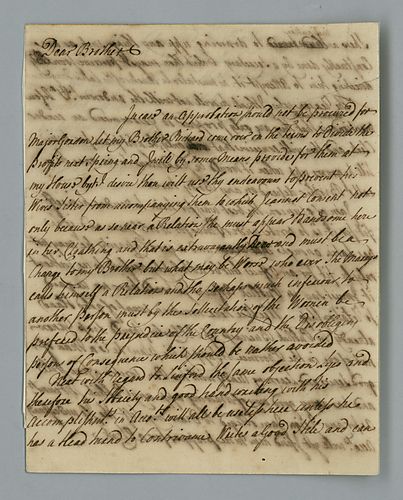 Dear Brother
In case an appointment should not be procured for
Major Gordon let my Brother Richard come over on the terms to divide the
Profits next Spring and I will by some means provide for them at
my House but I desire thou wilt use thy endeavours to prevent his
Wives Sister from accompanying them to which I cannot Consent not
only because as so near a Relation she must appear handsome here
in her Cloathing and that is extravagantly here and must be a
Charge to my Brother but what may be Worse who ever She Marrys
calls himself a Relation and tho perhaps much inferiour to
another person must by the sollicitation of the Women be
preferred to the prejudice of the Country and the Disobliging
persons of Consequence which should be rather avoided
Next with regard to the same objection lyes and
therefore his Sobriety and good hand working with his
accomplishmt. in Accots. will all be useless here unless he
has a Head and to Contrivance Writes a good Stile and can